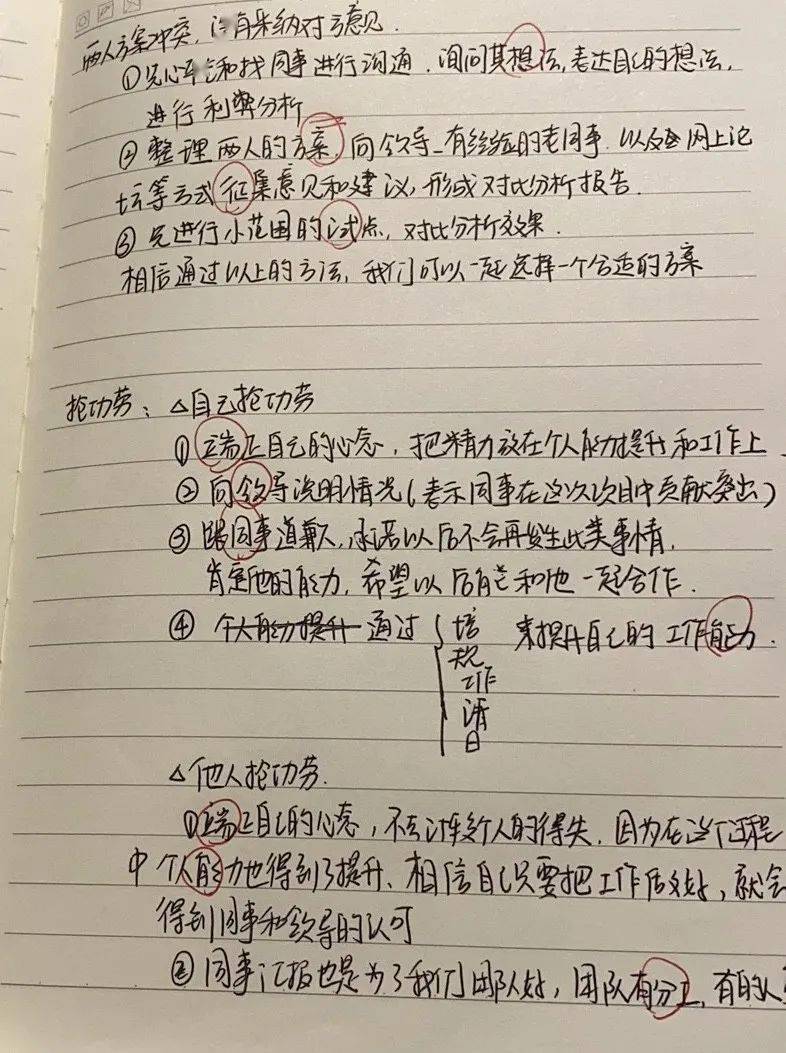 两人方案冲突，没有采纳对方意见.
①先心平气和找同事进行沟通.询问其想法,表达自己的想法,
进行利弊分析
② 整理两人的方案,向领导、有经验的老同事.以及网上论
坛等方式征集意见和建议,形成对比分析报告.
③ 先进行小范围的试点,对比分析效果.
相信通过以上的方法,我们可以一起选择一个合适的方案
抢功劳：△自己抢功劳
① 端正自己的心态,把精力放在个人能力提升和工作上
② 向领导说明情况(表示同事在这次项目中贡献突出)
③ 跟同事道歉,承诺以后不会再发生此类事情,
肯定他的能力,希望以后能和他一起合作.
④ 个人能力提升 通过 { 培 来提升自己的工作能力.
规
工作
日
△他人抢功劳.
①端正自己的心态,不去计较个人的得失.因为在这个过程
中个人能力也得到了提升、相信自己只要把工作做好,就会
得到同事和领导的认可
② 同事汇报也是为了我们团队好,团队有分工,有的人